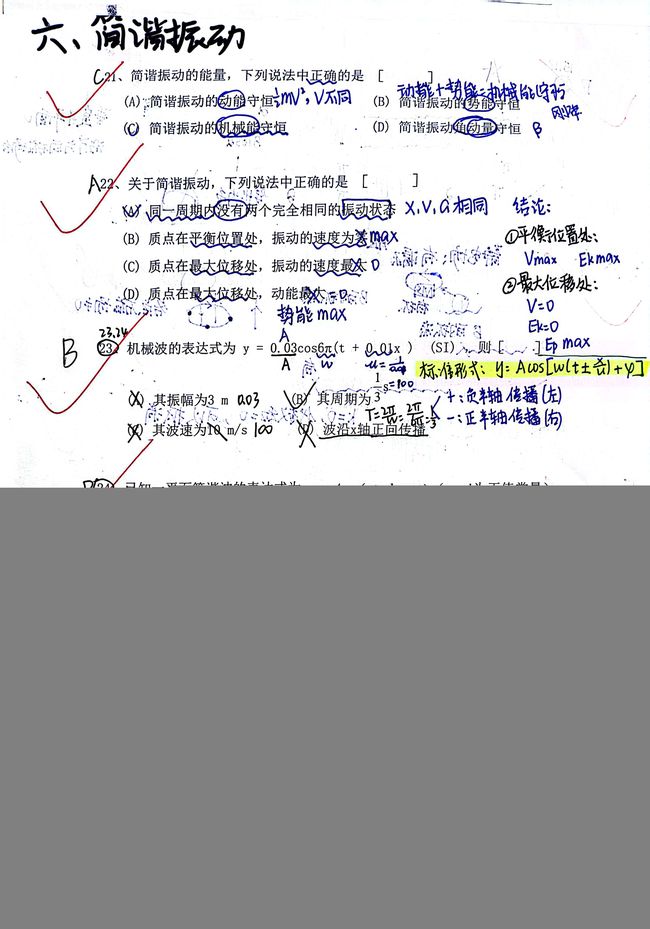 六、简谐振动
C 21、简谐振动的能量，下列说法中正确的是 [ ]
动能+势能=机械能守恒
(A) 简谐振动的动能守恒 ½mV², V不同 (B) 简谐振动的势能守恒
刚体
(C) 简谐振动的机械能守恒 (D) 简谐振动角动量守恒 β
A 22、关于简谐振动，下列说法中正确的是 [ ]
(A) 同一周期内没有两个完全相同的振动状态 X,V,a相同 结论：
(B) 质点在平衡位置处，振动的速度为零 max ①平衡位置处：
Vmax Ekmax
(C) 质点在最大位移处，振动的速度最大 0 ②最大位移处：
(D) 质点在最大位移处，动能最大=0 V=0
势能max Ek=0
Ep max
23.24
B 23、机械波的表达式为 y = 0.03cos6π(t + 0.01x ) (SI) ，则 [ ]
A A w
标准形式：y=Acos[w(t±x/u)+φ]
(A) 其振幅为3 m 0.03 (B) 其周期为1/3 s
+：负半轴传播(左)
(C) 其波速为10 m/s 100 (D) 波沿x轴正向传播
−：正半轴传播(右)